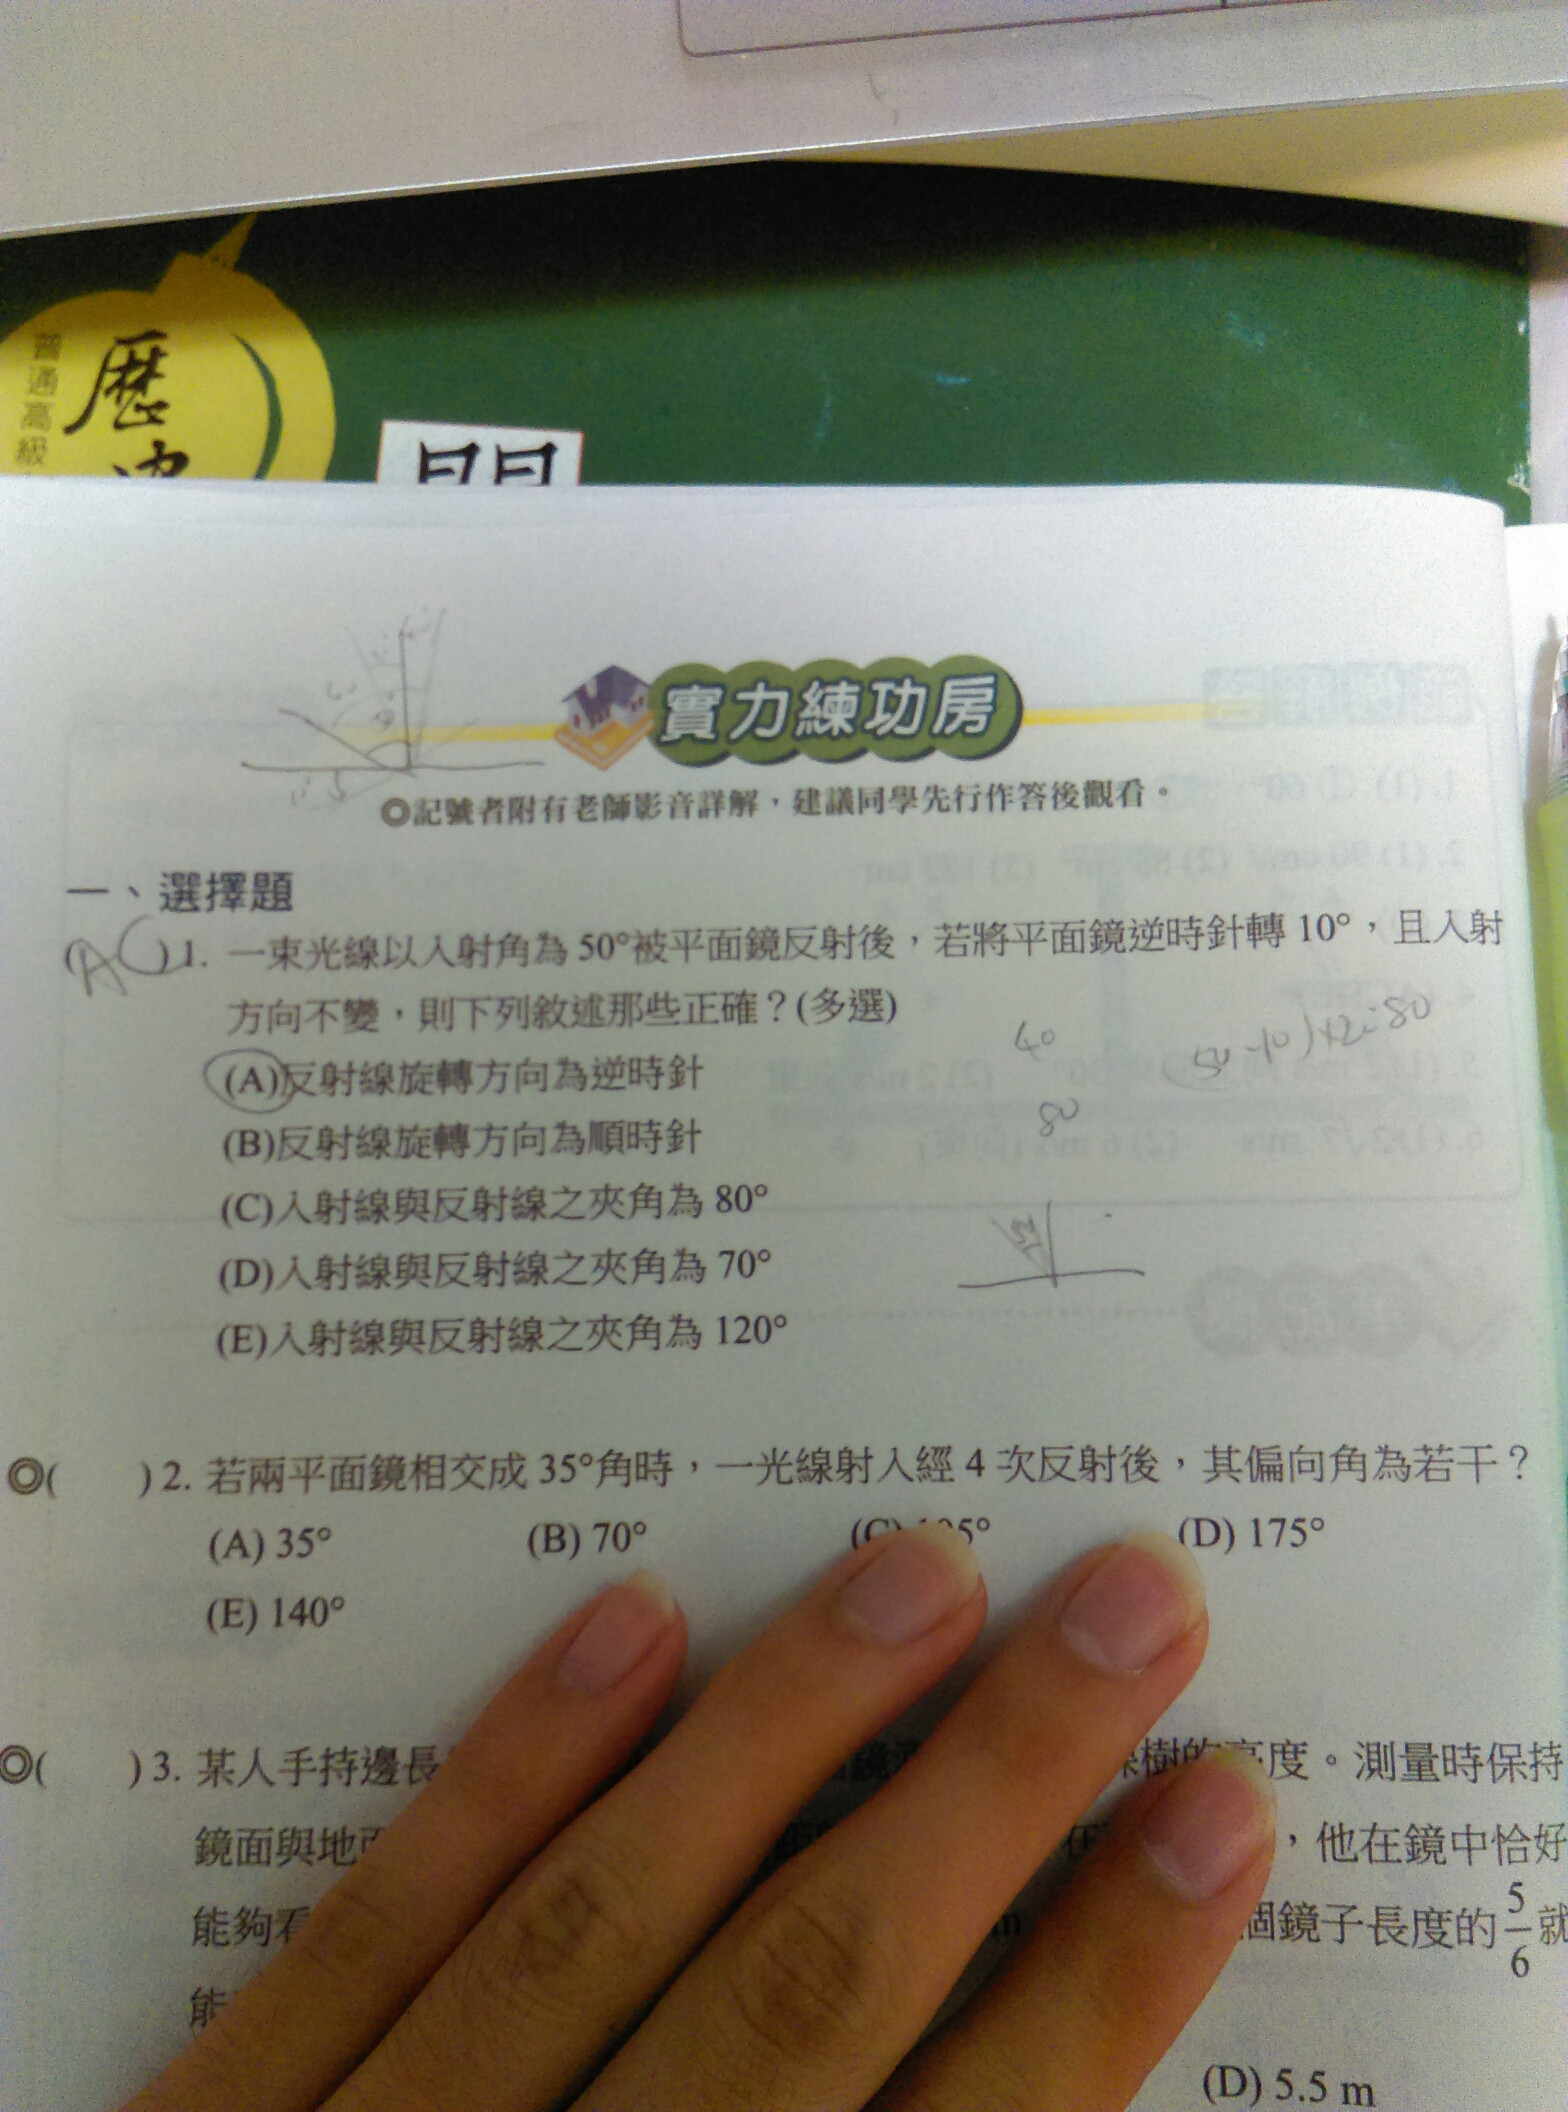 普通高級
歷史
實力練功房
◎記號者附有老師影音詳解,建議同學先行作答後觀看。
一、選擇題
(AC)1. 一束光線以入射角為50°被平面鏡反射後,若將平面鏡逆時針轉10°,且入射
方向不變,則下列敘述那些正確?(多選)
40
(50-10)×2=80
(A)反射線旋轉方向為逆時針
80
(B)反射線旋轉方向為順時針
(C)入射線與反射線之夾角為80°
(D)入射線與反射線之夾角為70°
(E)入射線與反射線之夾角為120°
◎( )2. 若兩平面鏡相交成35°角時,一光線射入經4次反射後,其偏向角為若干?
(A) 35° (B) 70° (C) 5° (D) 175°
(E) 140°
◎( )3. 某人手持邊長 樹的高度。測量時保持
鏡面與地面 ,他在鏡中恰好
能夠看 個鏡子長度的5/6就
能
(D) 5.5 m